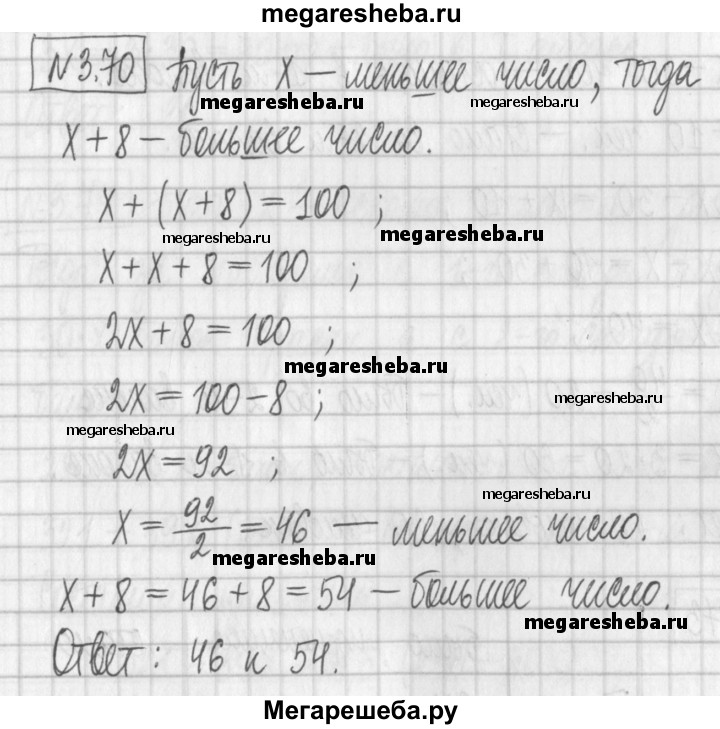 megaresheba.ru
№3.70 Пусть x — меньшее число, тогда
megaresheba.ru megaresheba.ru
x + 8 — большее число.
x + (x + 8) = 100 ;
megaresheba.ru megaresheba.ru
x + x + 8 = 100 ;
2x + 8 = 100 ;
megaresheba.ru
2x = 100 - 8 ;
megaresheba.ru
megaresheba.ru
2x = 92 ;
megaresheba.ru
x = 92/2 = 46 — меньшее число.
megaresheba.ru
x + 8 = 46 + 8 = 54 — большее число.
megaresheba.ru
Ответ: 46 и 54.
Мегарешеба.ру